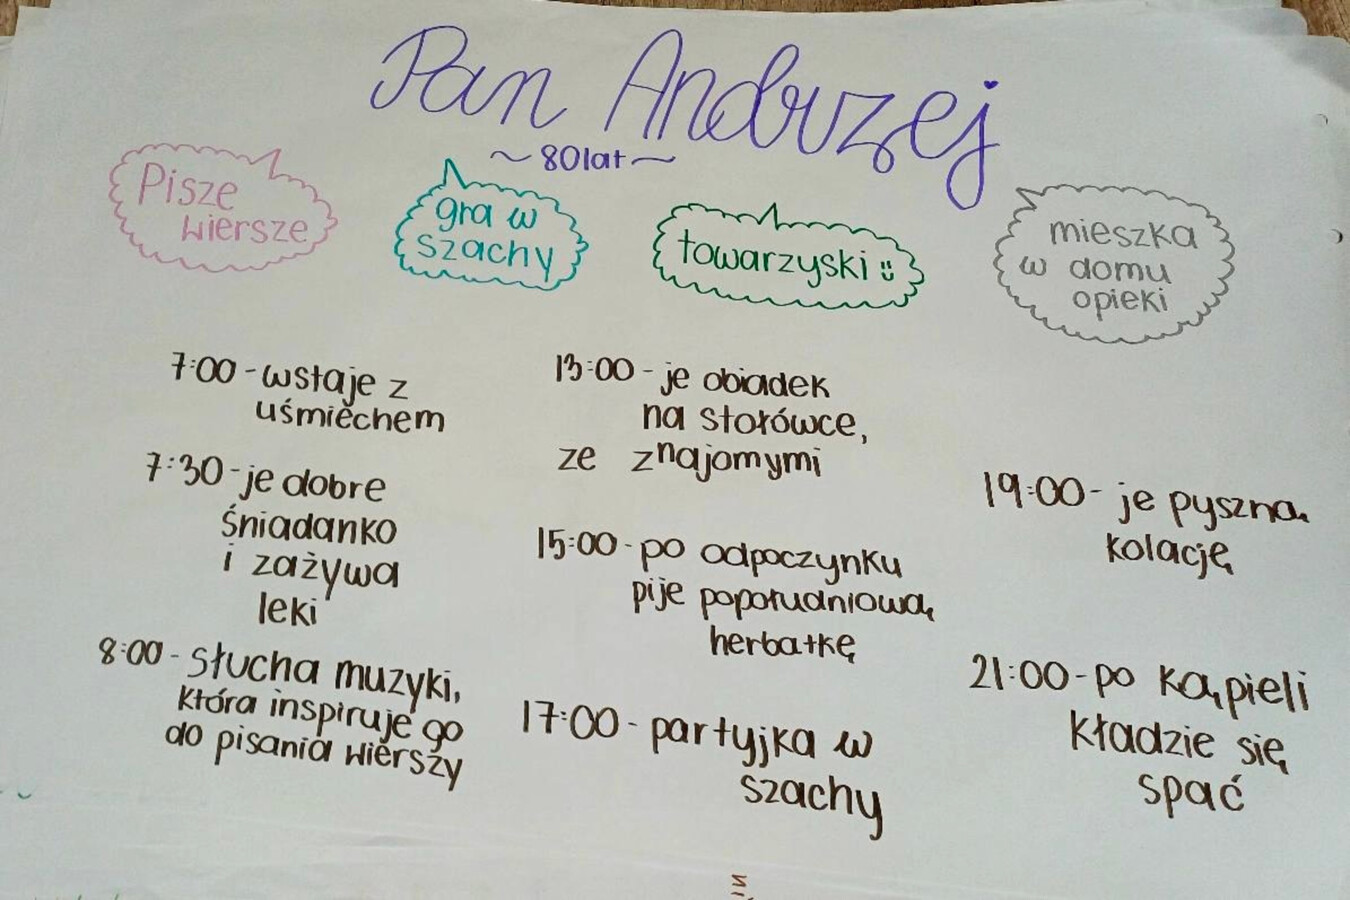 Pan Andrzej
~ 80 lat ~
Pisze
wiersze
gra w
szachy
towarzyski
mieszka
w domu
opieki
7:00 - wstaje z
uśmiechem
7:30 - je dobre
śniadanko
i zażywa
leki
8:00 - słucha muzyki,
która inspiruje go
do pisania wierszy
13:00 - je obiadek
na stołówce,
ze znajomymi
15:00 - po odpoczynku
pije popołudniową
herbatkę
17:00 - partyjka w
szachy
19:00 - je pyszną
kolację
21:00 - po kąpieli
kładzie się
spać